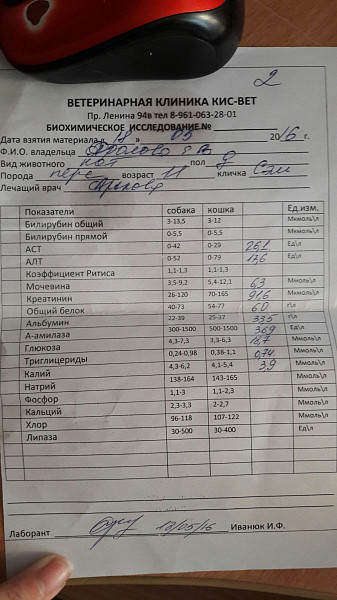 2
ВЕТЕРИНАРНАЯ КЛИНИКА КИС-ВЕТ
Пр. Ленина 94в тел 8-961-063-28-01
БИОХИМИЧЕСКОЕ ИССЛЕДОВАНИЕ №
Дата взятия материала « 18 » 05 2016 г.
Ф.И.О. владельца
Вид животного кот пол
Порода перс возраст 11 кличка Сэм
Лечащий врач
Показатели собака кошка Ед.изм.
Билирубин общий 3-13,5 3-12 Мкмоль\л
Билирубин прямой 0-5,5 0-5,5 Мкмоль\л
АСТ 0-42 0-29 26,1 Ед\л
АЛТ 0-52 0-79 17,6 Ед\л
Коэффициент Ритиса 1,1-1,3 1,1-1,3
Мочевина 3,5-9,2 5,4-12,1 6,3 Ммоль\л
Креатинин 26-120 70-165 91,6 Мкмоль\л
Общий белок 40-73 54-77 60 г\л
Альбумин 22-39 25-37 33,5 г\л
А-амилаза 300-1500 500-1500 369 Ед\л
Глюкоза 4,3-7,3 3,3-6,3 Ммоль\л
Триглицериды 0,24-0,98 0,38-1,1 0,74 Ммоль\л
Калий 4,3-6,2 4,1-5,4 3,9 Ммоль\л
Натрий 138-164 143-165 Ммоль\л
Фосфор 1,1-3 1,1-2,3 Ммоль\л
Кальций 2,3-3,3 2-2,7 Ммоль\л
Хлор 96-118 107-122 Ммоль\л
Липаза 30-500 30-400 Ед\л
Лаборант /05/16 Иванюк И.Ф.